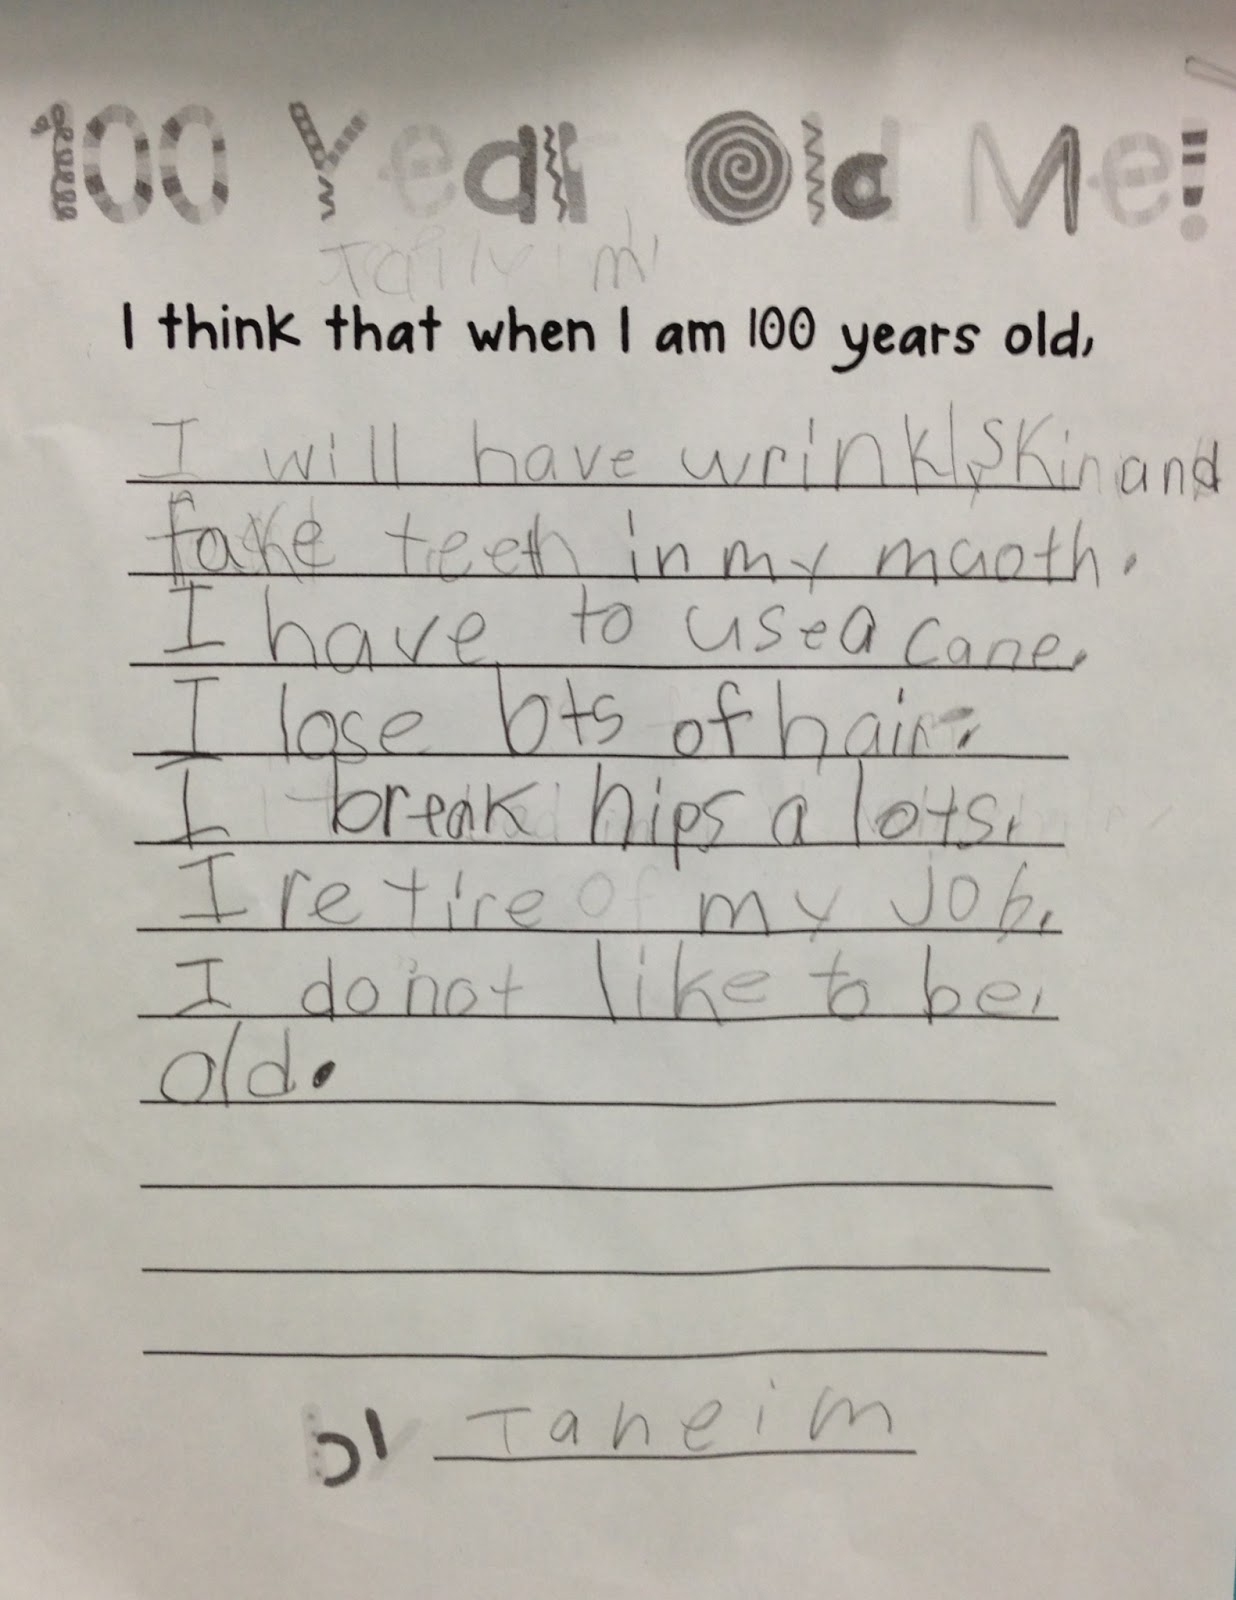 100 Year Old Me!
I think that when I am 100 years old,
I will have wrinkly skin and
fake teeth in my maoth.
I have to use a cane.
I lose lots of hair.
I break hips a lots.
I retire of my job.
I do not like to be.
old.
by Taheim